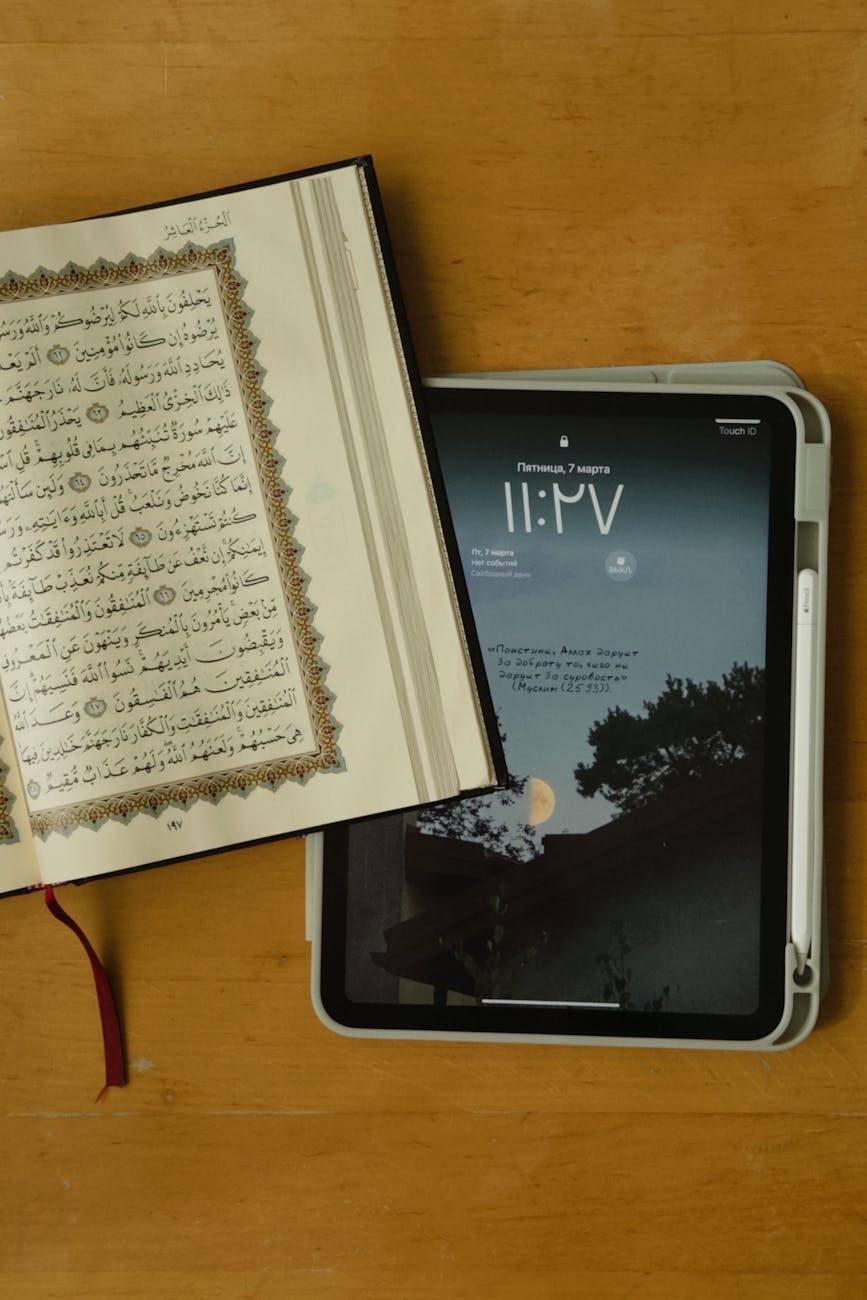 ٱلْجُزْءُ ٱلْعَاشِرُ
يَحْلِفُونَ بِٱللَّهِ لَكُمْ لِيُرْضُوكُمْ وَٱللَّهُ
يُرْضُوهُ إِن كَانُوا۟ مُؤْمِنِينَ ٦٢ أَلَمْ
يُحَادِدِ ٱللَّهَ وَرَسُولَهُۥ فَأَنَّ لَهُۥ نَارَ جَهَنَّمَ
ذَٰلِكَ ٱلْخِزْىُ ٱلْعَظِيمُ ٦٣ يَحْذَرُ ٱلْمُنَٰفِقُونَ
عَلَيْهِمْ سُورَةٌ تُنَبِّئُهُم بِمَا فِى قُلُوبِهِمْ ۚ قُلِ
إِنَّ ٱللَّهَ مُخْرِجٌ مَّا تَحْذَرُونَ ٦٤ وَلَئِن
إِنَّمَا كُنَّا نَخُوضُ وَنَلْعَبُ ۚ قُلْ أَبِٱللَّهِ وَءَايَٰتِهِۦ
كُنتُمْ تَسْتَهْزِءُونَ ٦٥ لَا تَعْتَذِرُوا۟ قَدْ كَفَرْتُم
إِيمَٰنِكُمْ ۚ إِن نَّعْفُ عَن طَآئِفَةٍ مِّنكُمْ نُعَذِّبْ طَآئِفَةًۢ
كَانُوا۟ مُجْرِمِينَ ٦٦ ٱلْمُنَٰفِقُونَ وَٱلْمُنَٰفِقَٰتُ
مِّنۢ بَعْضٍ ۚ يَأْمُرُونَ بِٱلْمُنكَرِ وَيَنْهَوْنَ عَنِ ٱلْمَعْرُوفِ
وَيَقْبِضُونَ أَيْدِيَهُمْ ۚ نَسُوا۟ ٱللَّهَ فَنَسِيَهُمْ ۗ إِنَّ
ٱلْمُنَٰفِقِينَ هُمُ ٱلْفَٰسِقُونَ ٦٧ وَعَدَ ٱللَّهُ
ٱلْمُنَٰفِقِينَ وَٱلْمُنَٰفِقَٰتِ وَٱلْكُفَّارَ نَارَ جَهَنَّمَ خَٰلِدِينَ فِيهَا
هِىَ حَسْبُهُمْ ۚ وَلَعَنَهُمُ ٱللَّهُ ۖ وَلَهُمْ عَذَابٌ مُّقِيمٌ ٦٨
١٩٧
Touch ID
Пятница, 7 марта
١١:٢٧
Пт, 7 марта
Нет событий
Свободный день
ВЫКЛ.
«Поистине, Аллах дарует
за доброту то, чего не
дарует за суровость»
(Муслим (2593)).
Pencil